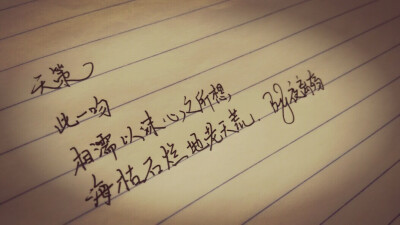 天策
此一吻
相濡以沫心之所想,
海枯石烂地老天荒.